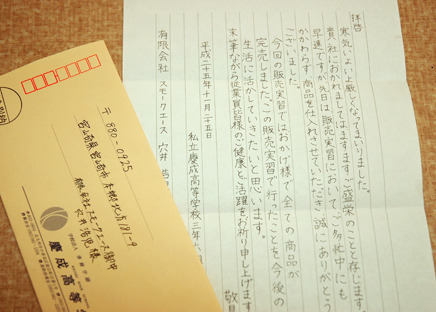 拝啓
寒気いよいよ厳しくなってまいりました。
貴社におかれましてはますますご盛栄のことと存じます。
早速ですが、先日は販売実習において、ご多忙中にも
かかわらず、商品を仕入れさせていただき誠にありがとう
ございました。
今回の販売実習ではおかげ様で全ての商品が
完売しました。この販売実習で行ったことを今後の
生活に活かしていきたいと思います。
末筆ながら従業員皆様のご健康と、活躍をお祈り申し上げます
敬具
平成二十五年十一月二十五日
私立慶成高等学校三年
有限会社 スモークエース 穴井
〒880-0925
宮崎県宮崎市本郷北方
有限会社スモークエース御中
穴井浩児様
慶成高等